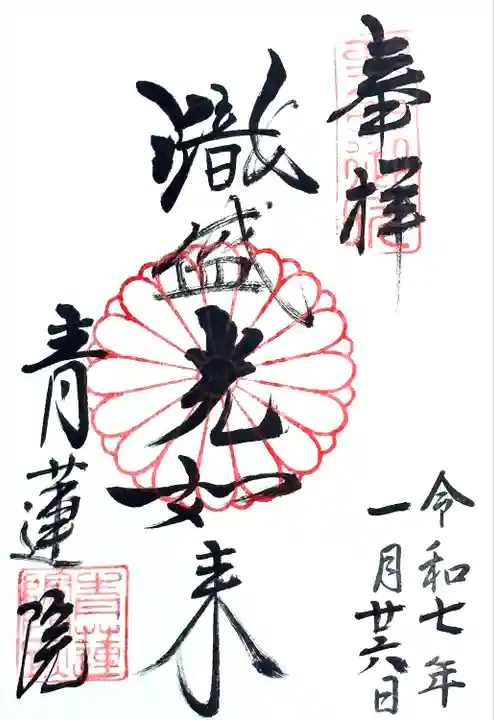 奉拝
令和七年
一月廿六日
熾盛光如来
青蓮院
青蓮